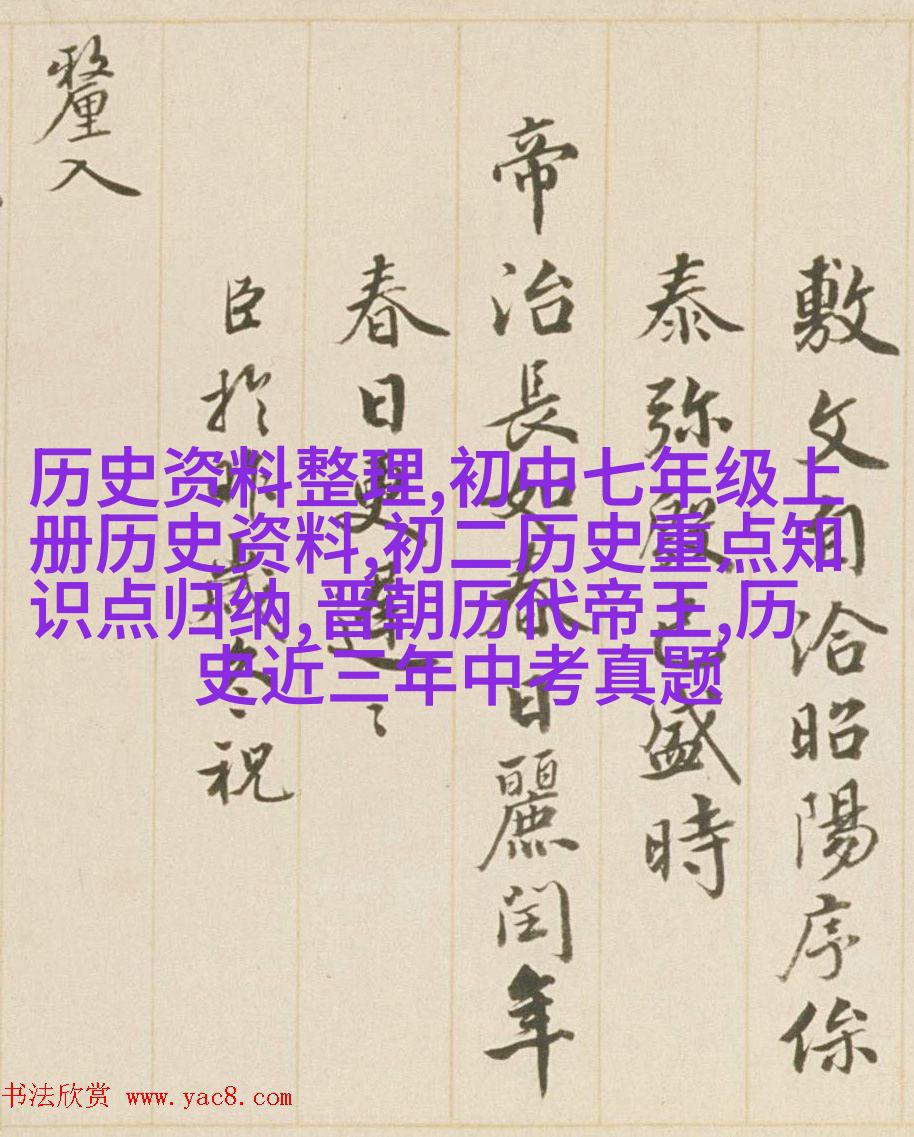 敷文有洽昭陽序
泰弥已盛時
帝治長如春日麗閏年
春日更遲々
臣於昨歲冬祝
釐入
历史资料整理,初中七年级上
册历史资料,初二历史重点知
识点归纳,晋朝历代帝王,历
史近三年中考真题
书法欣赏 www.yac8.com